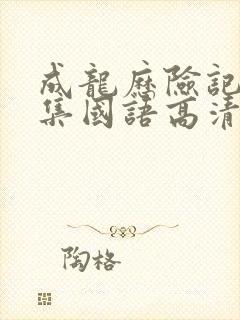 成龍歷險記
集國語高清
陶格